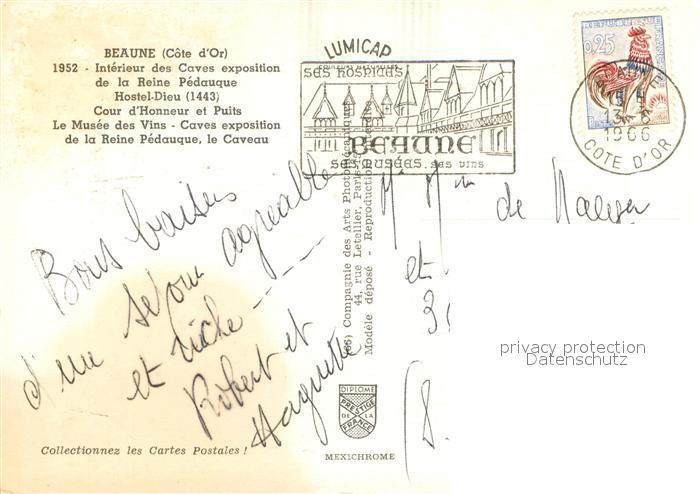 BEAUNE (Côte d'Or)
1952 - Intérieur des Caves exposition
de la Reine Pédauque
Hostel-Dieu (1443)
Cour d'Honneur et Puits
Le Musée des Vins - Caves exposition
de la Reine Pédauque, le Caveau
LUMICAP
SES HOSPICES
BEAUNE
SES MUSÉES, SES VINS
0,25
13
1966
COTE D'OR
Bons baisers
d'un séjour agréable
et riche
Robert et
Huguette
Compagnie des Arts Photomécaniques
44, rue Letellier, Paris
Modèle déposé - Reproduction
de
et
privacy protection
Datenschutz
DIPLOME
PRESTIGE
DE LA
FRANCE
MEXICHROME
Collectionnez les Cartes Postales !